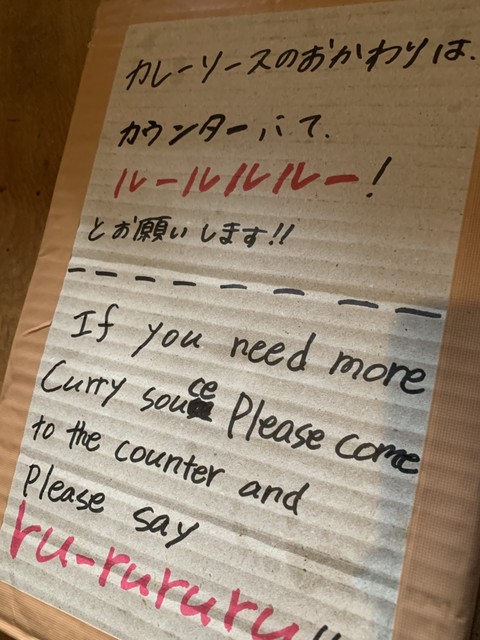 カレーソースのおかわりは、
カウンターにて、
ルールルルー!
とお願いします!!
If you need more
Curry source Please come
to the counter and
Please say
ru-rururu!!